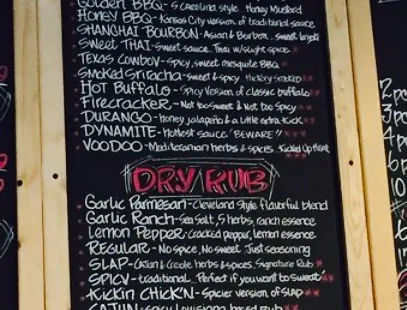 Golden BBQ - S Carolina style. Honey Mustard
Honey BBQ - Kansas City version of traditional sauce
SHANGHAI BOURBON - Asian & Bourbon.. sweet teriyaki
SWEET THAI - sweet sauce. Thai w/slight spice *
TEXAS COWBOY - Spicy, sweet mesquite BBQ *
SMOKED SRIRACHA - sweet & spicy Hickory smoked **
HOT BUFFALO - Spicy Version of classic buffalo **
FIRECRACKER - Not too sweet & Not too Spicy **
DURANGO - honey, jalapeño & a little extra kick **
DYNAMITE - Hottest sauce "BEWARE!" ***
VOODOO - Mediterranian herbs & spices. Kicked Up Heat ***
DRY RUB
GARLIC PARMESAN - Cleveland Style flavorful blend
GARLIC RANCH - Sea Salt, 5 herbs, ranch essence
LEMON PEPPER - Cracked pepper, lemon essence
REGULAR - No spice, No sweet. Just seasoning
SLAP - Cajun & Creole herbs & spices. Signature Rub *
SPICY - traditional.. Perfect if you want to sweat *
KICKIN CHICK'N - Spicier version of SLAP **
CAJUN - Spicy Louisiana based rub
2 pc
3 pc
4 p
6 p
10